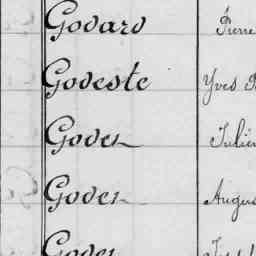 Godard Pierre
Godeste Yves
Goder Julien
Goder Augus
Goder